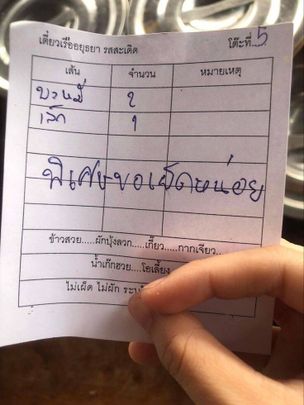 เตี๋ยวเรืออยุธยา รสสะเดิด โต๊ะที่ 5
เส้น จำนวน หมายเหตุ
บะหมี่ 2
เล็ก 1
พิเศษขอเผ็ดหน่อย
ข้าวสวย.....ผักบุ้งลวก.....เกี๊ยว.....กากเจียว.....
น้ำเก๊กฮวย.....โอเลี้ยง.....
ไม่เผ็ด ไม่ผัก